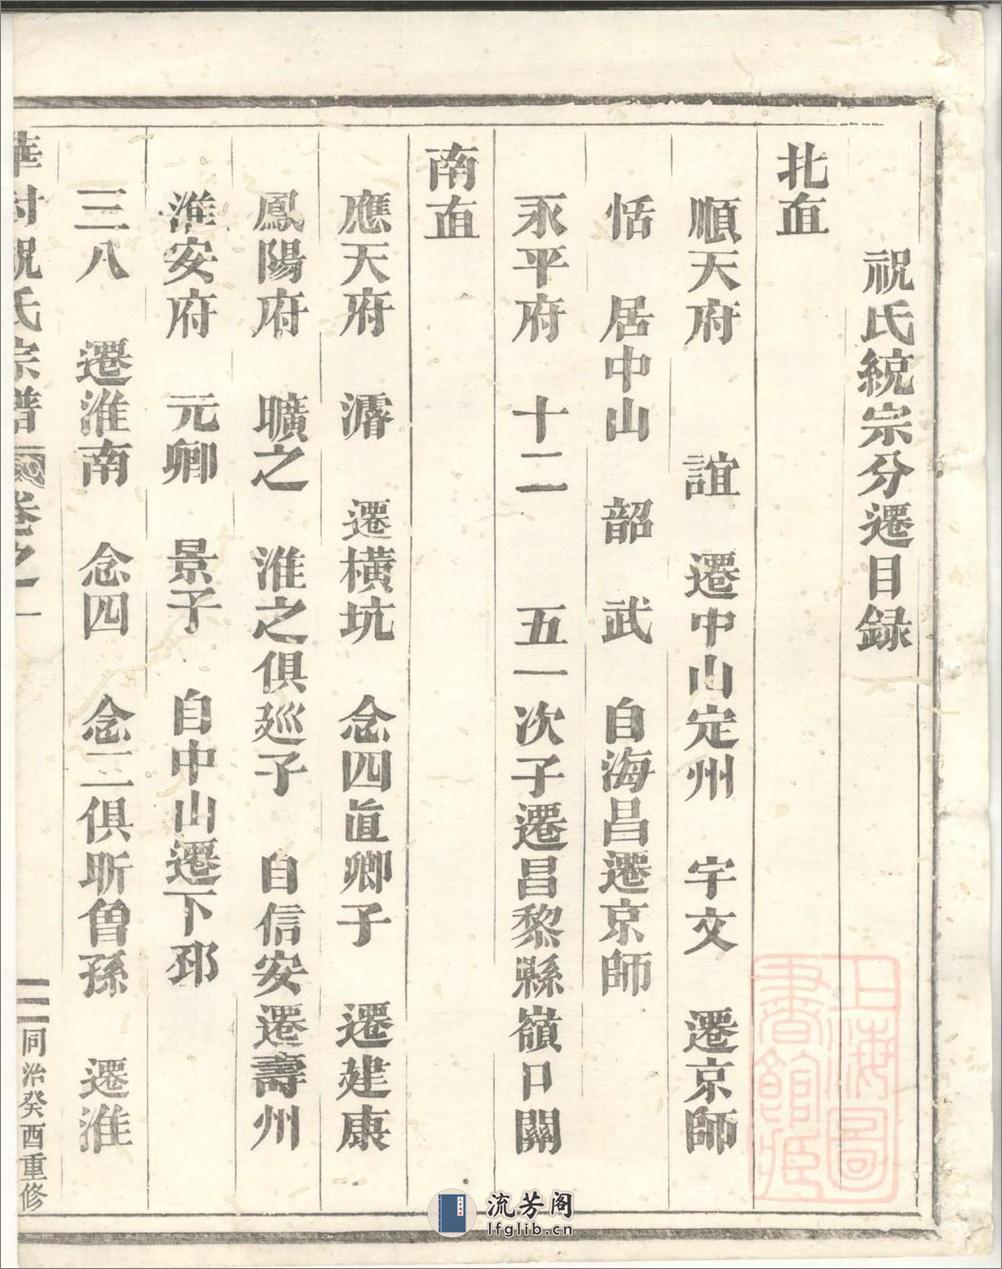 祝氏統宗分遷目録
北直
順天府　誼　遷中山定州　宇文　遷京師
恬　居中山　韶　武　自海昌遷京師
永平府　十二　五一次子遷昌黎縣嶺口關
南直
應天府　濬　遷橫坑　念四直卿子　遷建康
鳳陽府　曠之　淮之俱廵子　自信安遷壽州
淮安府　元卿　景子　自中山遷下邳
三八　遷淮南　念四　念二俱昕曾孫　遷淮
華封祝氏宗譜　卷之一
二　同治癸酉重修
上海圖書館藏
流芳阁
lfglib.cn